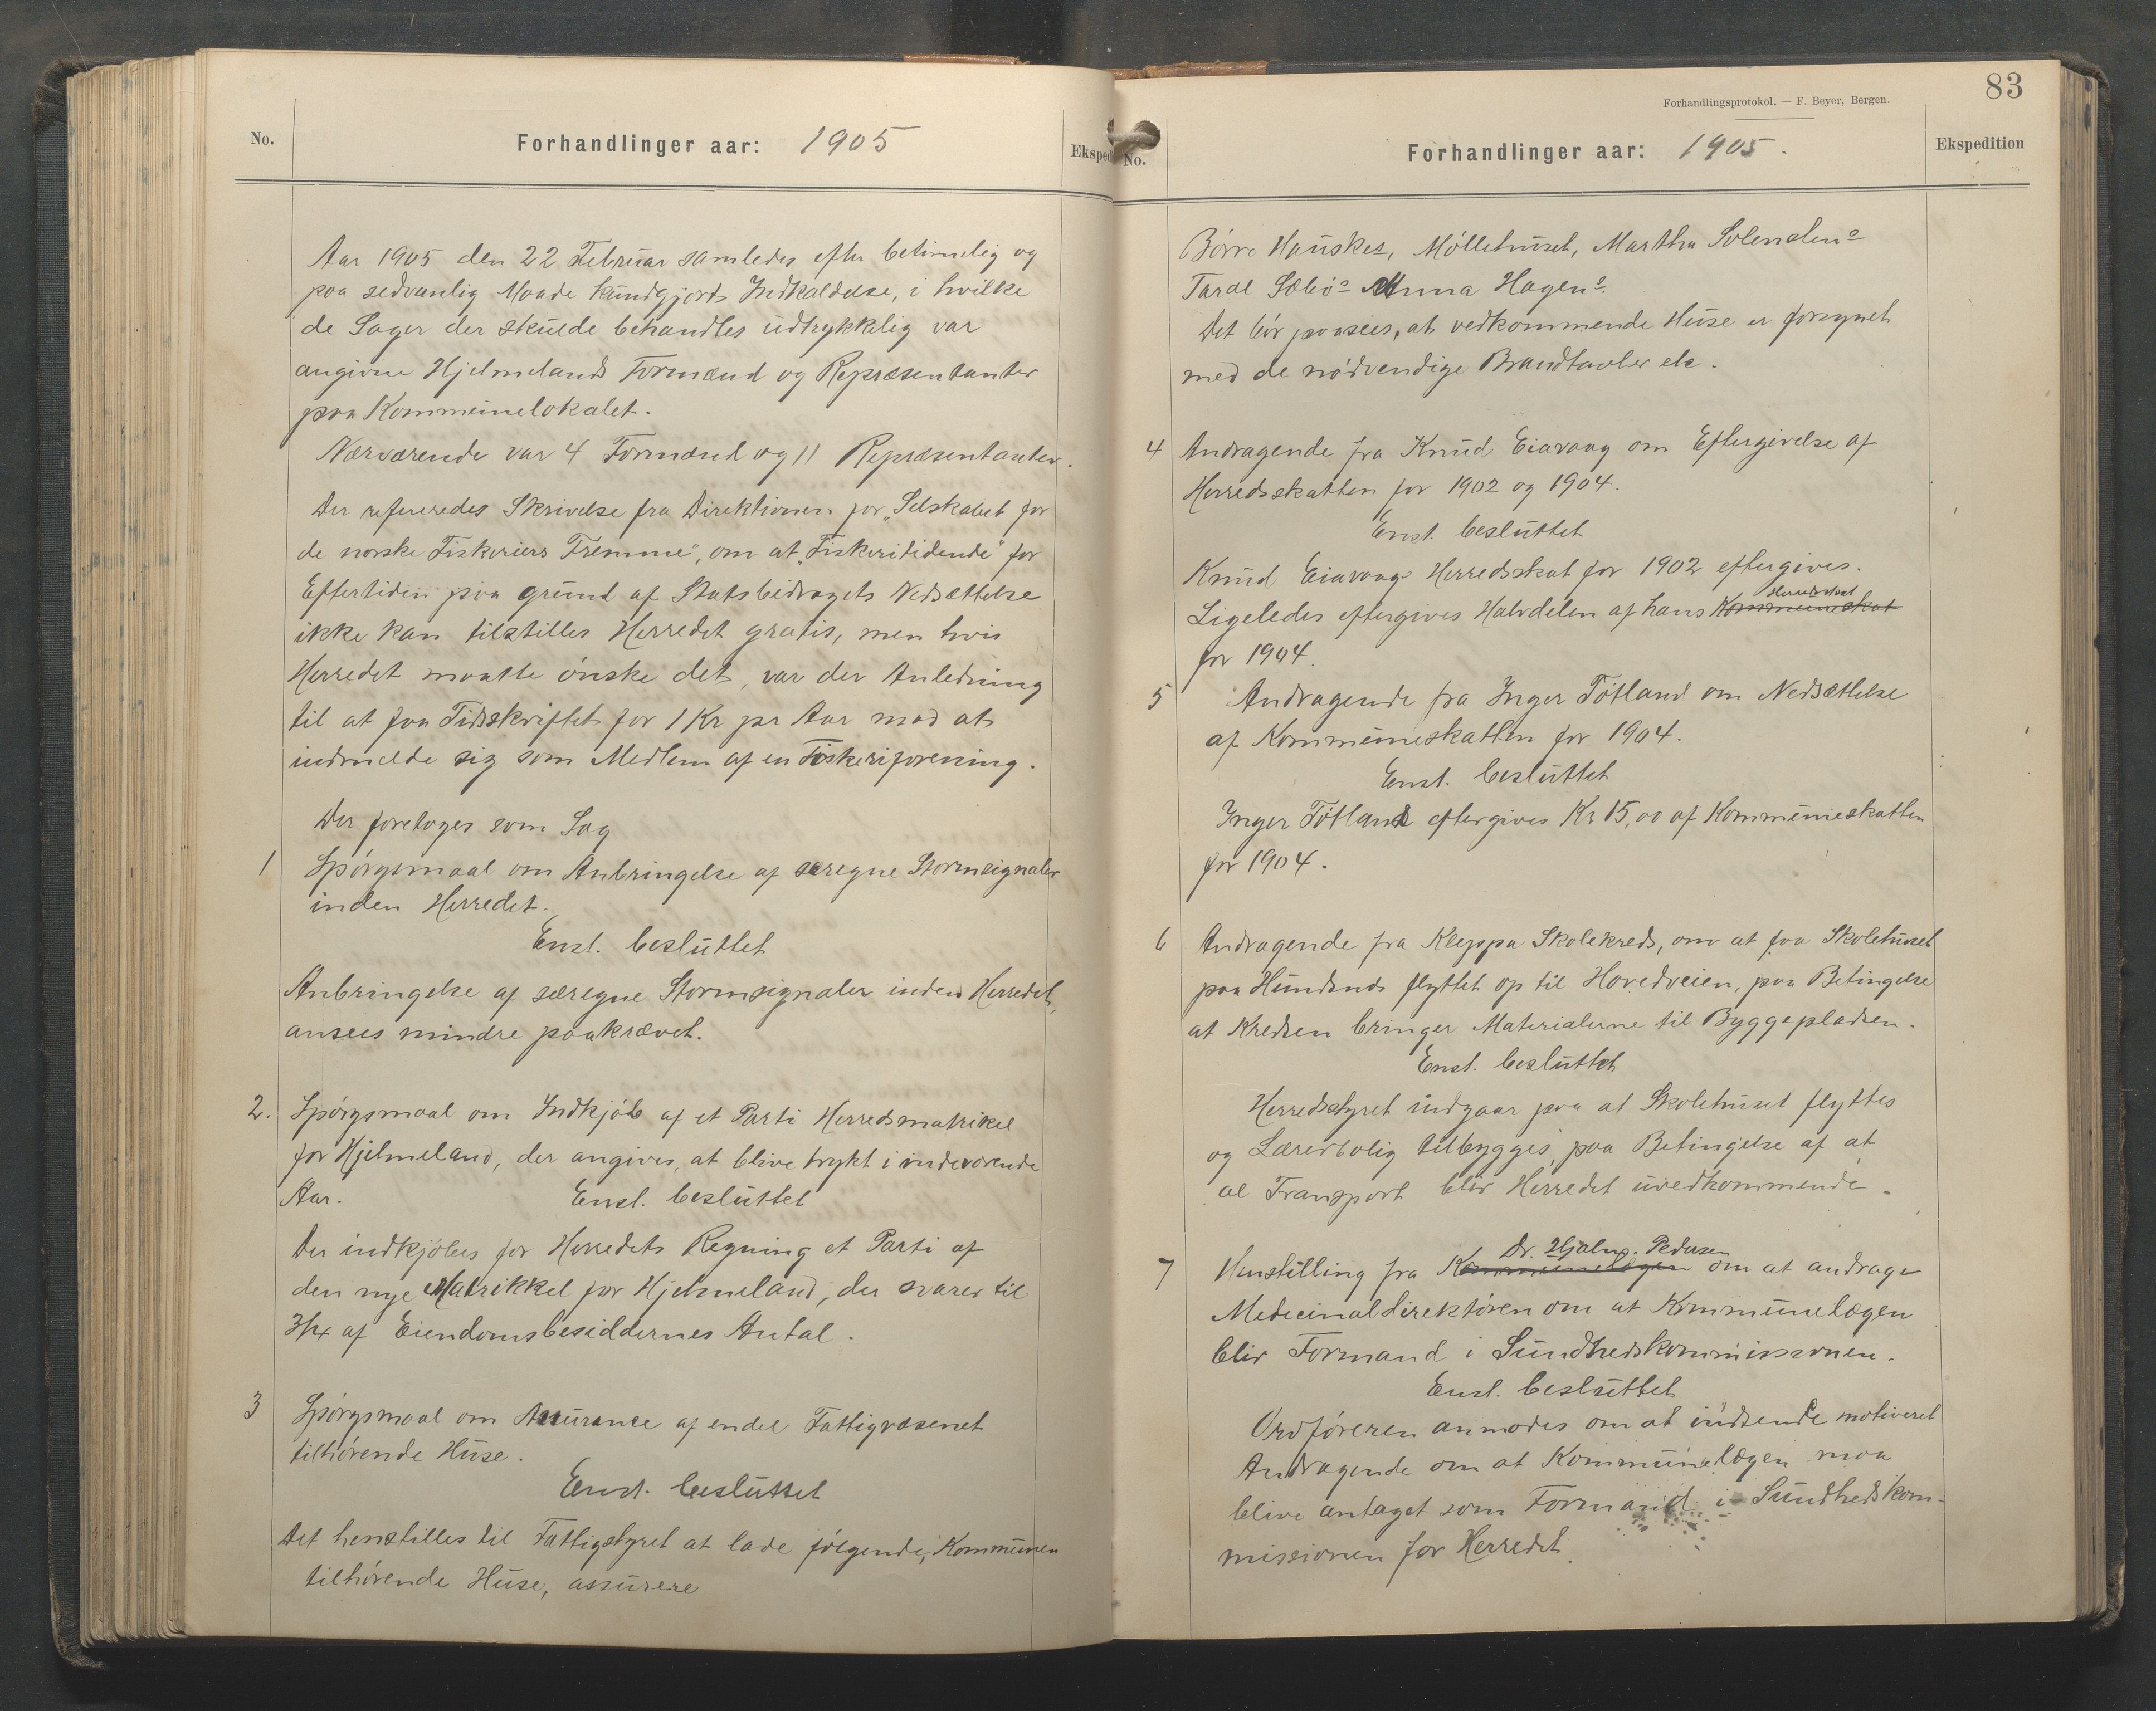 No.
Forhandlinger aar: 1905
Eksped
Aar 1905 den 22 Februar samledes efter betimelig og
paa sedvanlig Maade kundgjorts Indkaldelse, i hvilke
de Sager der skulde behandles udtrykkelig var
angivne Hjelmelands Formænd og Repræsentanter
paa Kommunelokalet.
Nærværende var 4 Formænd og 11 Repræsentanter.
Der refereredes Skrivelse fra Direktionen for „Selskabet for
de norske Fiskeriers Fremme", om at „Fiskeritidende" for
Eftertiden paa grund af Statsbidragets Nedsættelse
ikke kan tilstilles Herredet gratis, men hvis
Herredet maatte ønske det, var der Anledning
til at faa Tidsskriftet for 1 Kr pr Aar mod at
indmelde sig som Medlem af en Fiskeriforening.
Der foretoges som Sag
1 Spørgsmaal om Anbringelse af særegne Stormsignaler
inden Herredet.
Enst. besluttet
Anbringelse af særegne Stormsignaler inden Herredet,
ansees mindre paakrævet.
2. Spørgsmaal om Indkjøb af et Parti Herredsmatrikel
for Hjelmeland, der angives, at blive trykt i indeværende
Aar. Enst. besluttet
Der indkjøbes for Herredets Regning et Parti af
den nye Matrikkel for Hjelmeland, der svarer til
3/4 af Eiendomsbesiddernes Antal.
3 Spørgsmaal om Assurance af endel Fattigvæsenet
tilhørende Huse.
Enst. besluttet
Det henstilles til Fattigstyret at lade følgende, Kommunen
tilhørende Huse, assurere
83
Forhandlingsprotokol. — F. Beyer, Bergen.
No.
Forhandlinger aar: 1905.
Ekspedition
Børre Hauskes, Møllehuset, Martha
Taral Sæbø Anna Hagens
Det bør paasees, at vedkommende Huse er forsynet
med de nødvendige Brandtavler etc.
4 Andragende fra Knud Eiavaag om Eftergivelse af
Herredsskatten for 1902 og 1904.
Enst. besluttet
Knud Eiavaags Herredsskat for 1902 eftergives.
Herredsskat
Ligeledes eftergives Halvdelen af hans Kommuneskat
for 1904.
5 Andragende fra Inger Tøtland om Nedsættelse
af Kommuneskatten for 1904.
Enst. besluttet
Inger Tøtland eftergives Kr 15,00 af Kommuneskatten
for 1904.
6 Andragende fra Kleppa Skolekreds, om at faa Skolehuset
paa Hundsnes flyttet op til Hovedveien, paa Betingelse
at Kredsen bringer Materialerne til Byggepladsen.
Enst. besluttet
Herredsstyret indgaar paa at Skolehuset flyttes
og Lærerbolig tilbygges, paa Betingelse af at
al Transport blir Herredet uvedkommende.
Dr. Hjalm. Pedersen
7 Henstilling fra Kommunelægen om at andrage
Medicinaldirektøren om at Kommunelægen
blir Formand i Sundhedskommissionen.
Enst. besluttet
Ordføreren anmodes om at indsende motiveret
Andragende om at Kommunelægen maa
blive antaget som Formand i Sundhedskom-
missionen for Herredet.